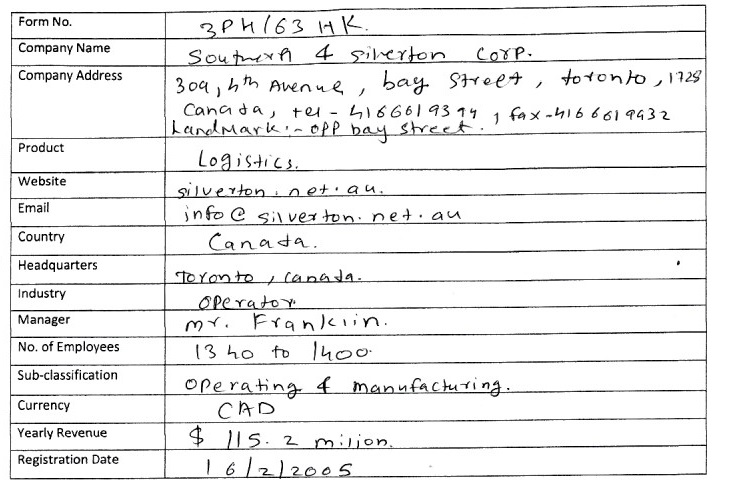 Form No. 3PH/63 HK.
Company Name Southern & silverton Corp.
Company Address 309, 4th Avenue, bay street, toronto, 1728
Canada, tel - 4166619394, fax - 4166619432
Landmark :- opp bay street.
Product Logistics.
Website silverton.net.au.
Email info@silverton.net.au
Country Canada.
Headquarters Toronto, Canada.
Industry Operator
Manager mr. Franklin.
No. of Employees 1340 to 1400.
Sub-classification Operating & manufacturing.
Currency CAD
Yearly Revenue $ 115.2 milion.
Registration Date 16/2/2005